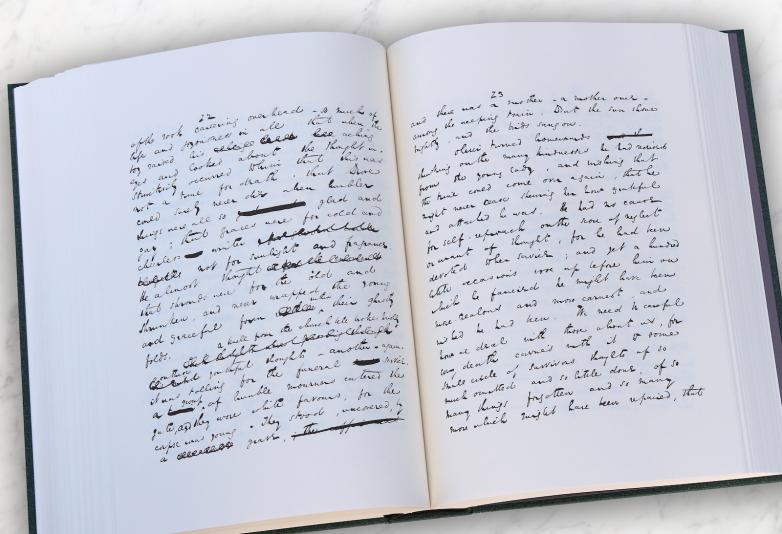 22
of the rook cawing overheads - so much of
life and joyousness in all that when the
boy raised his aching
eyes and looked about the thought in-
stinctively occurred to him that this was
not a time for death, that Rose
could surely never die when humbler
things were all so glad and
gay; that graves were for cold and
cheerless winter
not for sunlight and fragrance
He almost thought
that shrouds were for the old and
shrunken, and never wrapped the young
and graceful form within their ghastly
folds.
A knell from the church bell broke harshly
on these youthful thoughts - another - again.
it was tolling for the funeral service.
a group of humble mourners entered the
gate, they wore white favours, for the
corpse was young. They stood, uncovered, by
a grave,
23
and there was a mother - a mother once -
among the weeping train. But the sun shone
brightly, and the birds sang on.
Oliver turned homewards
thinking on the many kindnesses he had received
from the young lady, and wishing that
the time could come over again, that he
might never cease shewing her how grateful
and attached he was. He had no cause
for self-reproach on the score of neglect
or want of thought, for he had been
devoted to her service; and yet a hundred
little occasions rose up before him on
which he fancied he might have been
more zealous and more earnest, and
wished he had been. We need be careful
how we deal with those about us, for
every death carries with it to some
small circle of survivors thoughts of so
much omitted and so little done, of so
many things forgotten and so many
more which might have been repaired, that